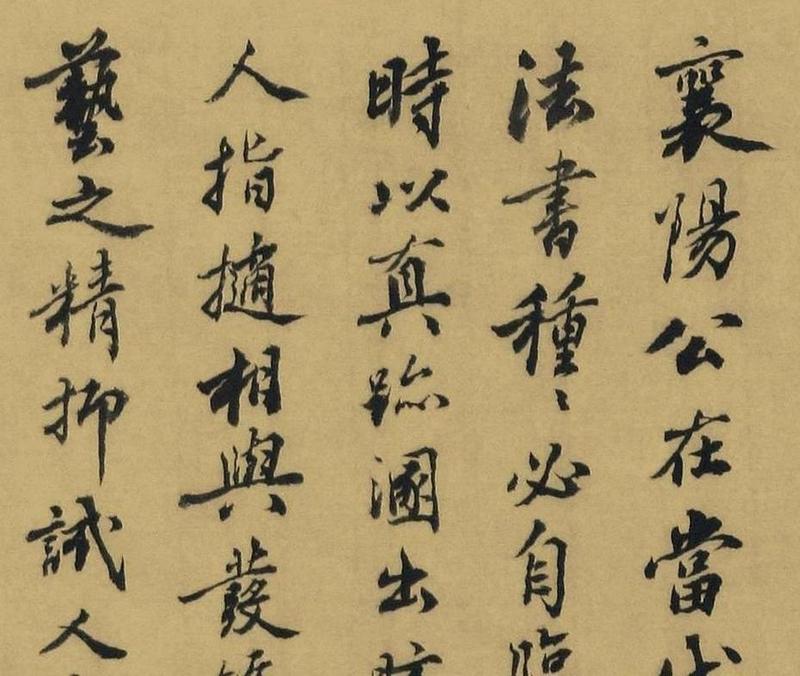 襄陽公在當代
法書種〻必自臨
時以真跡溷出眩
人指擿相與發
藝之精抑試人